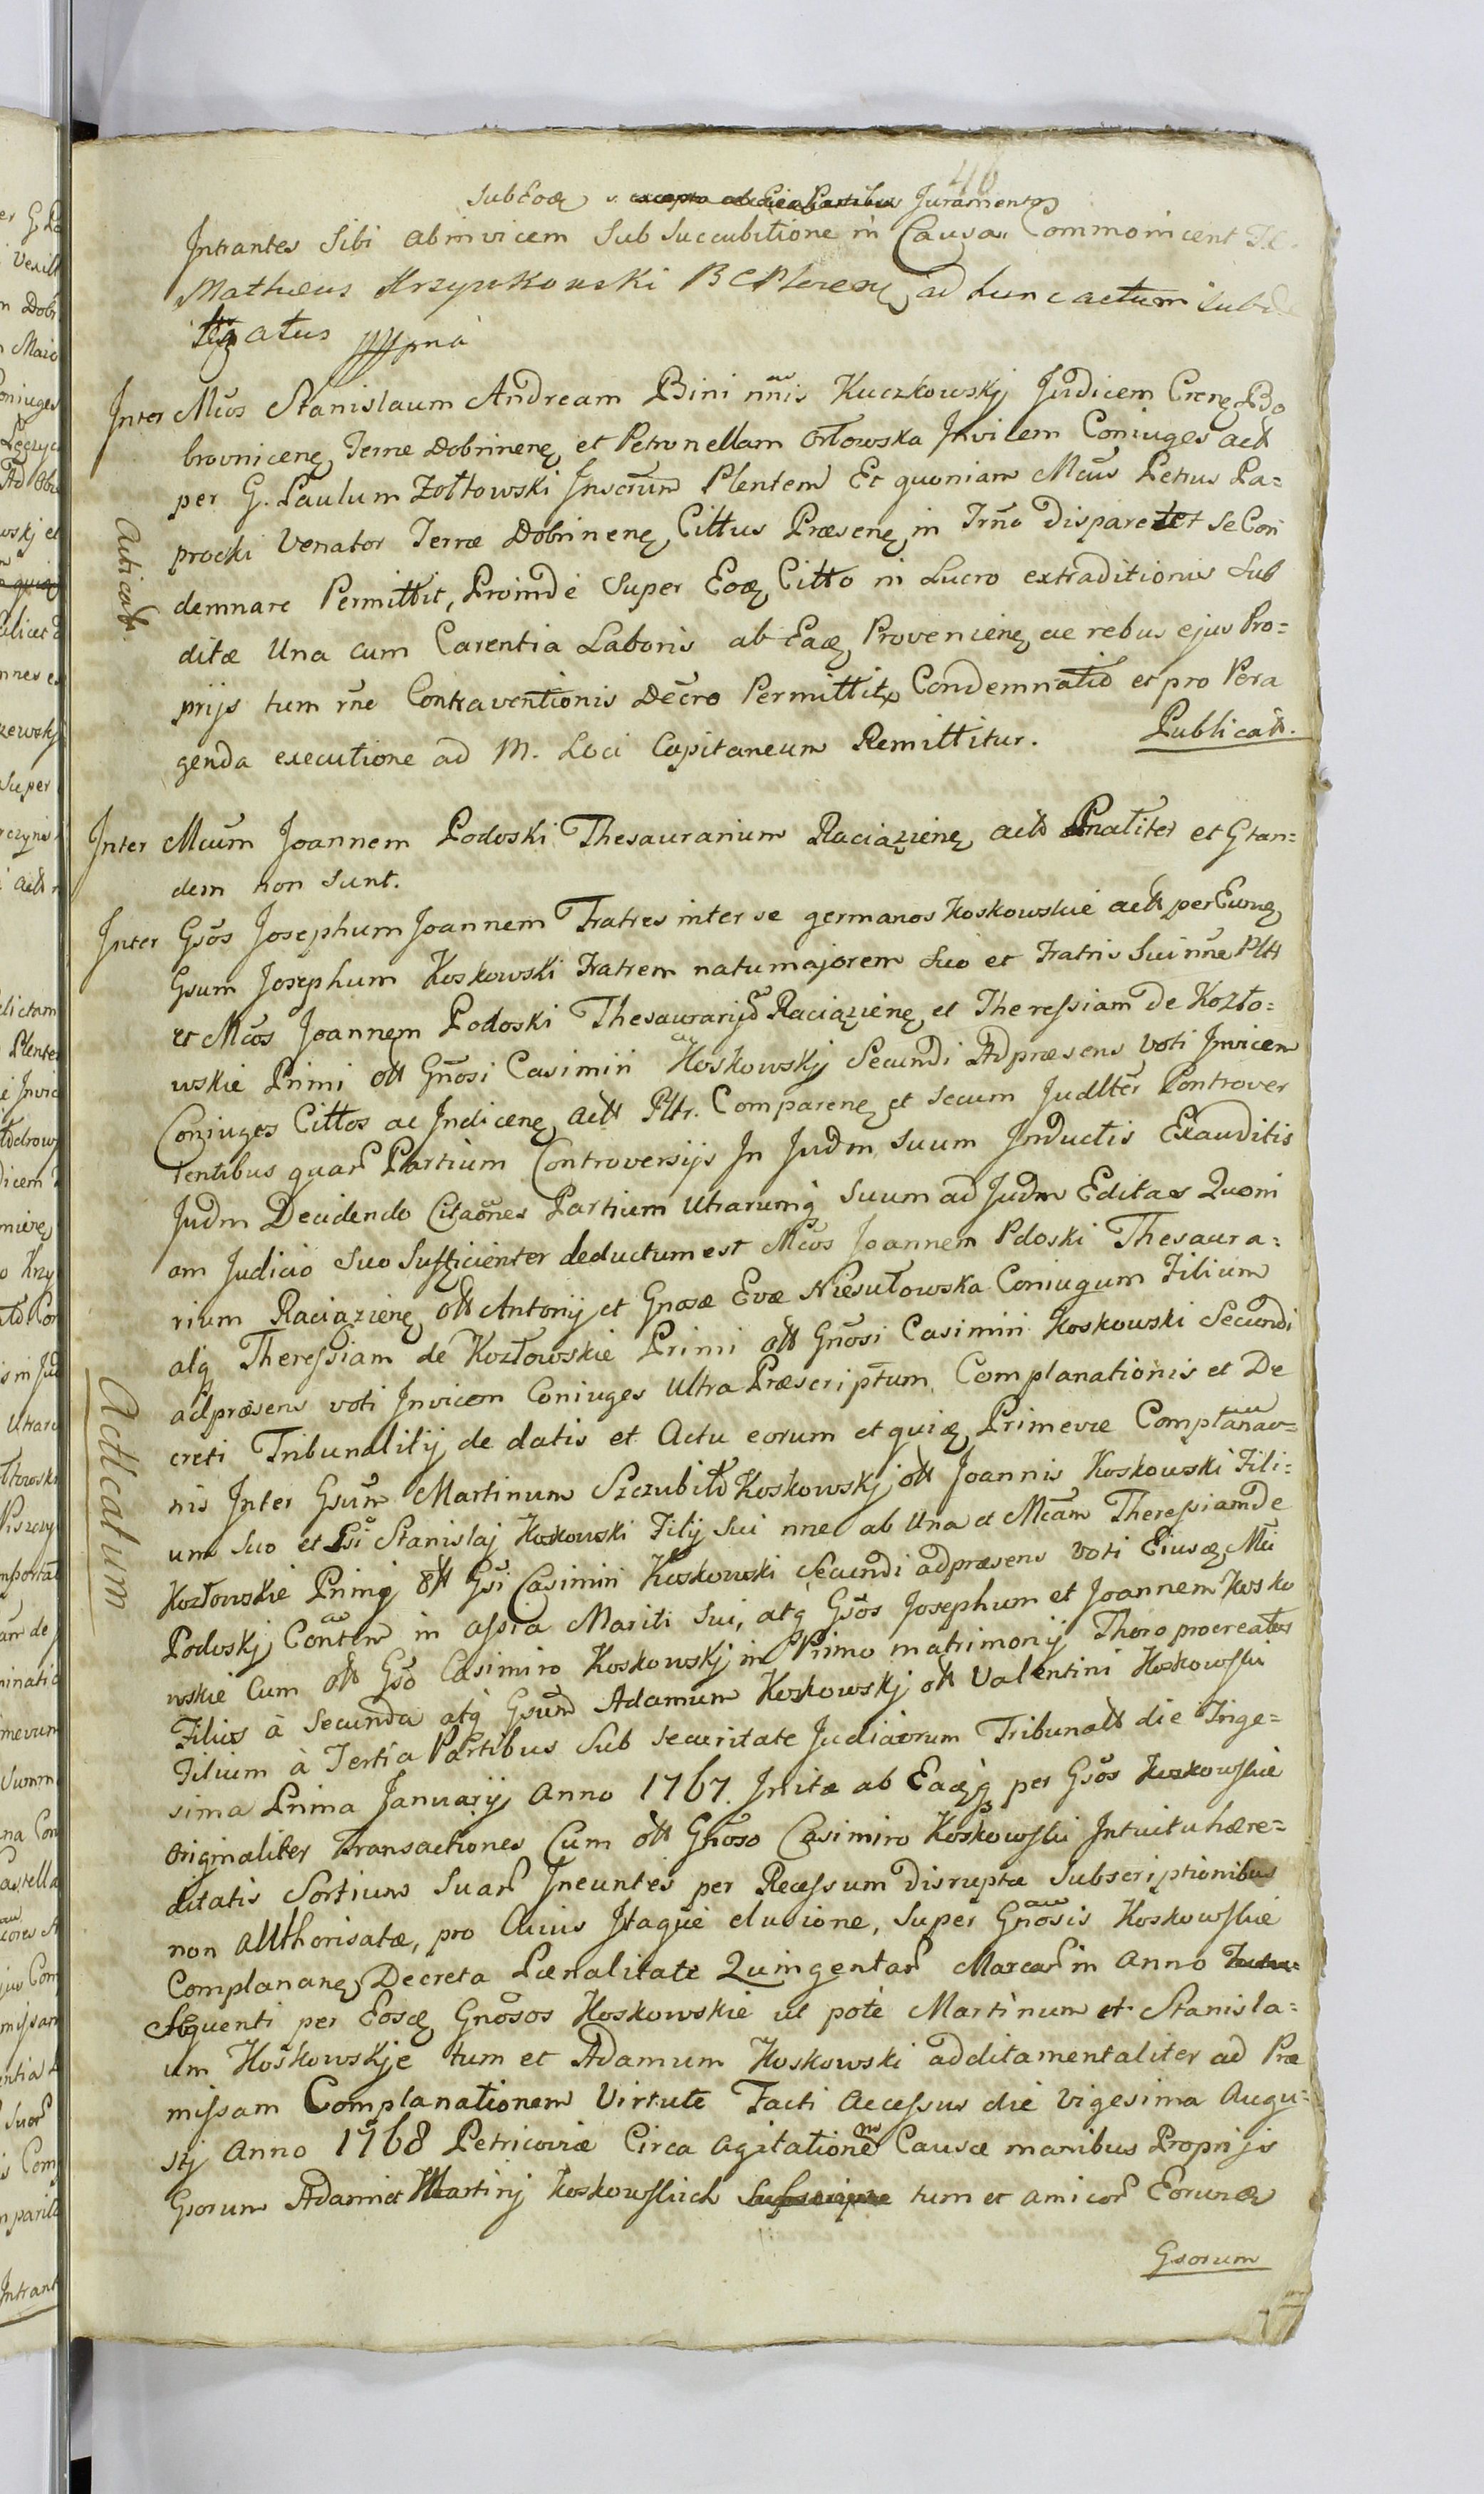 46
SubEoq s. Juramento
Intrantes Sibi abinvicem Sub Succubitione in Causa Commonicent
Matheus Krzynkowski B C Plocen ad hunc actum Subde
legatus mpria
Inter Mcos Stanislaum Andream Bini nnis Kuczkowskj Judicem Crenq Bo
brovnicenq Terrae Dobrinenq et Petronellam Orłowska Invicem Coniuges act
per G. Paulum Zołtowski Inscrum Plentem Et quoniam Mcus Petrus Pa=
procki Venator Terrae Dobrinenq Cittus Præsenq in Trno disparet et se Con
demnare Permittit, Proinde Super Eoq Citto in Lucro extraditionis Sub
ditæ Una cum Carentia Laboris ab Eaq Provenienq ac rebus ejus Pro=
prijs tum rne Contraventionis Decro Permittitr Condemnatio et pro Pera
genda executione ad M. Loci Capitaneum Remittitur. Publicatt.
Inter Mcum Joannem Podoski Thesaurarium Raciązienq actt Pnaliter et Gtan=
dem non sunt.
Inter Gsos Josephum Joannem Fratres inter se germanos Koskowskie actt per Eunq
Gsum Josephum Koskowski Fratrem natumajorem Suo et Fratris Sui nne Pltt
et Mcos Joannem Podoski Thesaurarijum Raciązienq et Theressiam de Kozło=
wskie Primi ott Gnosi Casimiri Koskowskj Secundi Adpræsens voti Invicem
Coniuges Cittos ac Indicenq actt Pltr. Comparenq et Secum Judlter Controver
tentibus quar Partium Controversijs In Judm Suum Inductis Exauditis
Judm Decidendo Citaones Partium Utrarumq Suum ad Judm Editas Quoni
am Judicio Suo Sufficienter deductum est Mcos Joannem Pdoski Thesaura=
rium Raciązienq ott Antonij et Gnosæ Evæ Niesułowska Coniugum Filium
atq Theressiam de Kozłowskie Primi ott Gnosi Casimiri Koskowski Secundi
adpræsens voti Invicem Coniuges Ultra Præscriptum Complanationis et De
creti Tribunalitij de datis et Actu eorum et quiq Primevæ Complanao=
nis Inter Gsum Martinum Szczubiło Koskowskj ott Joannis Koskowski Fili=
um Suo et Gsi Stanislaj Koskowski Filij Sui nne ab Una et Mcam Theressiam de
Kozłowskie Primi ott Gsi Casimiri Koskowski Secundi adpræsens voti Eiusq Mci
Podoskj Conten in assia Mariti Sui, atq Gsos Josephum et Joannem Kosko
wskie Cum ott Gso Casimiro Koskowskj in Primo matrimonij Thoro procreatos
Filios à Secunda atq Gsum Adamum Koskowskj ott Valentini Koskowski
Filium à Tertia Partibus Sub Securitate Judiciorum Tribunalt die Trige=
sima Prima Januarij Anno 1767. Initæ ab Eaqq per Gsos Koskowskie
originaliter Transactiones Cum ott Gnoso Casimiro Koskowski Intuitu hære=
ditatis Sortium Suar Ineuntes per Recessum disruptæ Subscriptionibus
non authorisatæ, pro Cuius Itaque elusione, Super Gnosis Koskowskie
Complananq Decreta Pœnalitate Quingentar Marcar in Anno
Sequenti per Eosq Gnosos Koskowskie ut pote Martinum et Stanisla=
um Koskowskje tum et Adamum Koskowski additamentaliter ad Præ
missam Complanationem Virtute Facti Accessus die Vigesima Augu=
stj Anno 1768 Petricoviæ Circa Agitationem Causæ manibus Proprijs
Gsorum Adami et Martinj Koskowskich tum et Amicor Eorunq
Gsorum
Acticatt.
Acticatum